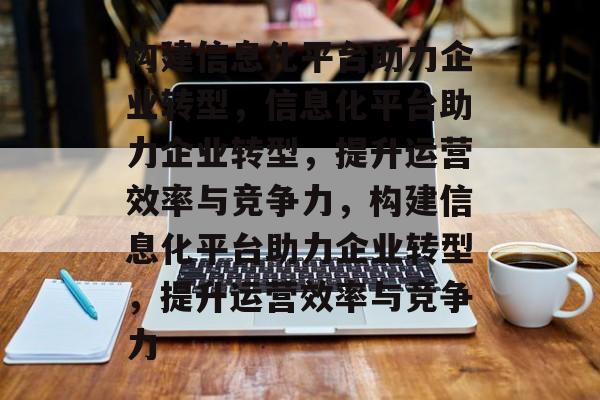 构建信息化平台助力企
业转型，信息化平台助
力企业转型，提升运营
效率与竞争力，构建信
息化平台助力企业转型
，提升运营效率与竞争
力